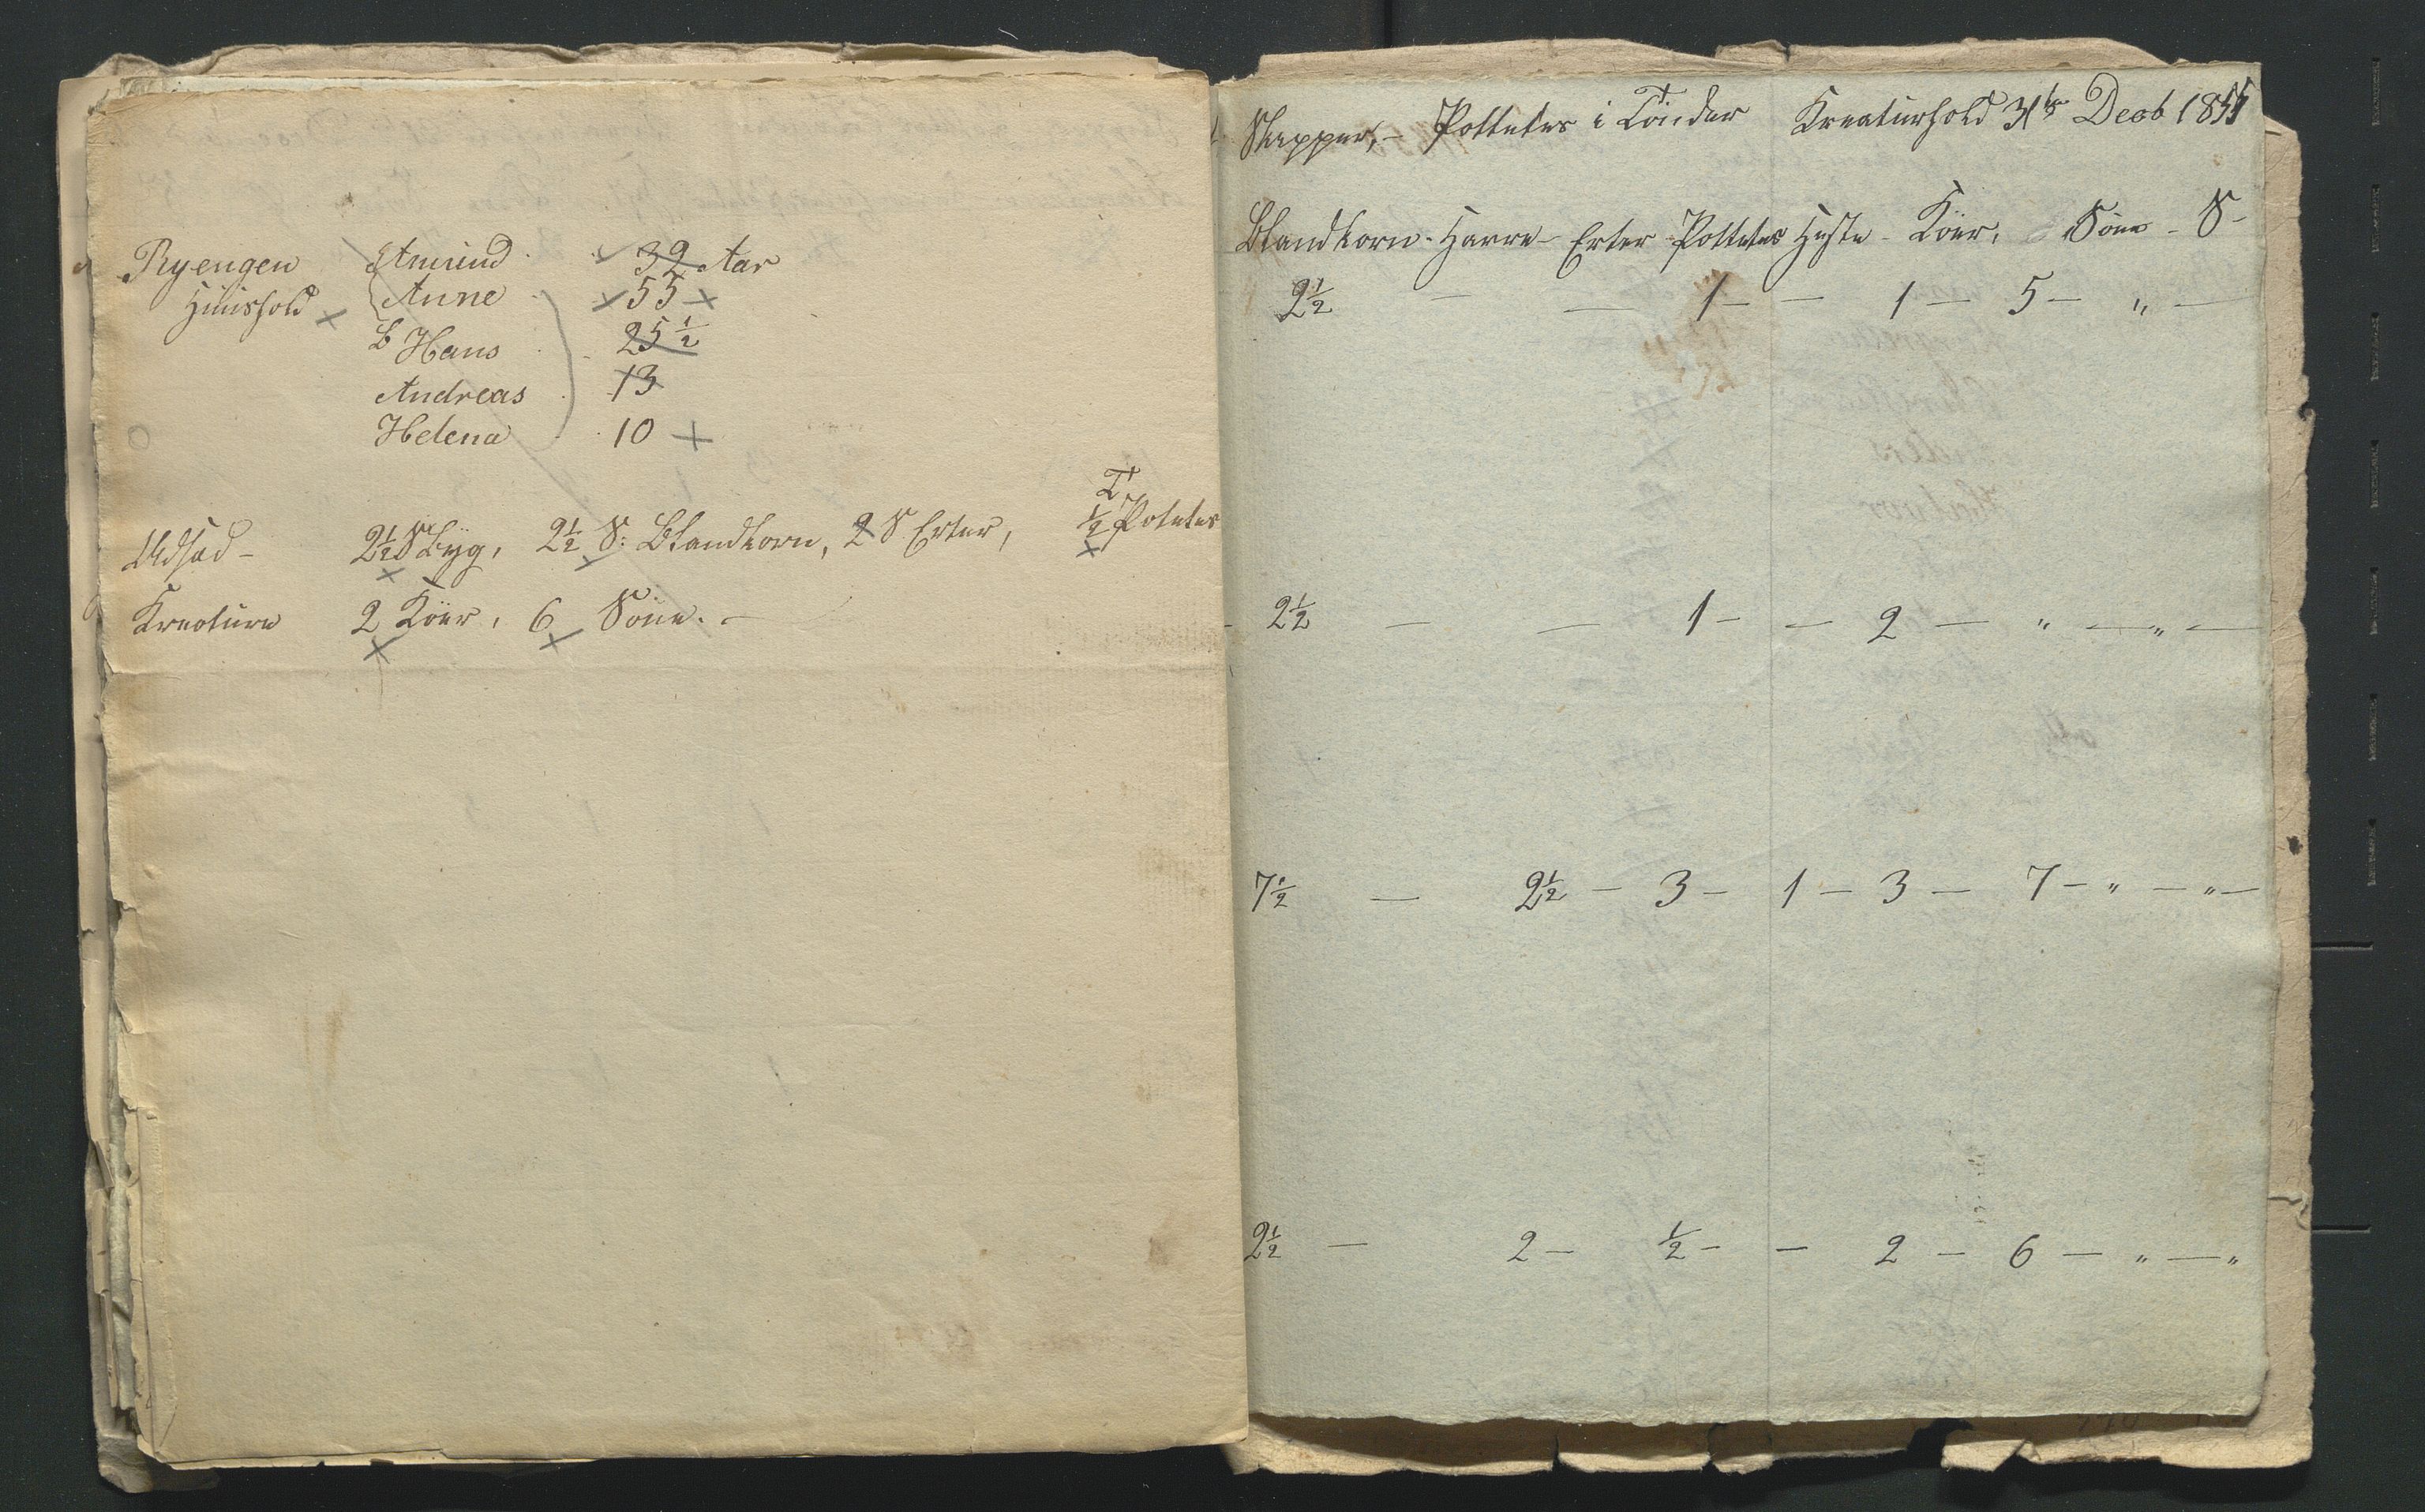 Ryengen Amund 32 Aar
Huushold Anne 55
L Hans 25 1/2
Andreas 13
Helena 10
Udsæd - 2 1/2 S Byg, 2 1/2 S: Blandkorn, 2 S Erter, 1/2 T Poteter
Kreature 2 Köer, 6 Söue. -
Skepper, - Potteter i Tönder Kreaturhold 31te Decb 1855
Blandkorn - Havre - Erter Potteter Heste - Köer, Söue - S-
2 1/2 — — 1 — — 1 — 5 — " —
2 1/2 — — 1 — — 2 — " — " —
7 1/2 — 2 1/2 — 3 — 1 — 3 — 7 — " — " —
2 1/2 — 2 — 1/2 — — 2 — 6 — " — "